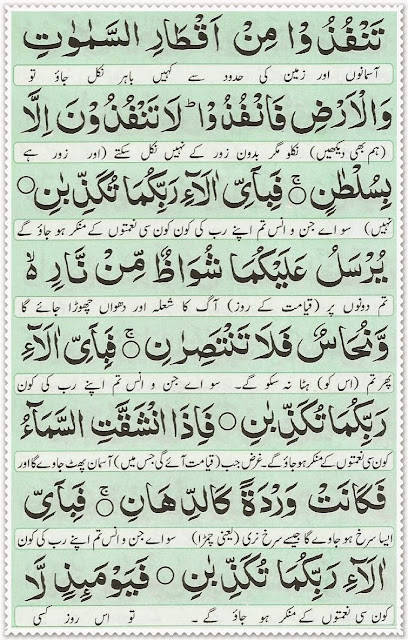 تَنْفُذُوْا مِنْ اَقْطَارِ السَّمٰوٰتِ
آسمانوں اور زمین کی حدود سے کہیں باہر نکل جاؤ تو
وَالْاَرْضِ فَانْفُذُوْا ؕ لَا تَنْفُذُوْنَ اِلَّا
(ہم بھی دیکھیں) نکلو مگر بدون زور کے نہیں نکل سکتے (اور زور ہے
بِسُلْطٰنٍ ۚ۝ فَبِاَیِّ اٰلَآءِ رَبِّكُمَا تُكَذِّبٰنِ ۝
نہیں) سو اے جن و انس تم اپنے رب کی کون کون سی نعمتوں کے منکر ہو جاؤ گے
یُرْسَلُ عَلَیْكُمَا شُوَاظٌ مِّنْ نَّارٍ ۙ۬
تم دونوں پر (قیامت کے روز) آگ کا شعلہ اور دھواں چھوڑا جائے گا
وَّنُحَاسٌ فَلَا تَنْتَصِرٰنِ ۚ۝ فَبِاَیِّ اٰلَآءِ
پھر تم (اس کو) ہٹا نہ سکو گے۔ سو اے جن و انس تم اپنے رب کی کون
رَبِّكُمَا تُكَذِّبٰنِ ۝ فَاِذَا انْشَقَّتِ السَّمَآءُ
کون سی نعمتوں کے منکر ہو جاؤ گے۔ غرض جب (قیامت آئے گی جس میں) آسمان پھٹ جاوے گا اور
فَكَانَتْ وَرْدَةً كَالدِّهَانِ ۚ۝ فَبِاَیِّ
ایسا سرخ ہو جاوے گا جیسے سرخ نری (یعنی چمڑا) سو اے جن و انس تم اپنے رب کی کون
اٰلَآءِ رَبِّكُمَا تُكَذِّبٰنِ ۝ فَیَوْمَىِٕذٍ لَّا
کون سی نعمتوں کے منکر ہو جاؤ گے۔ تو اس روز کسی